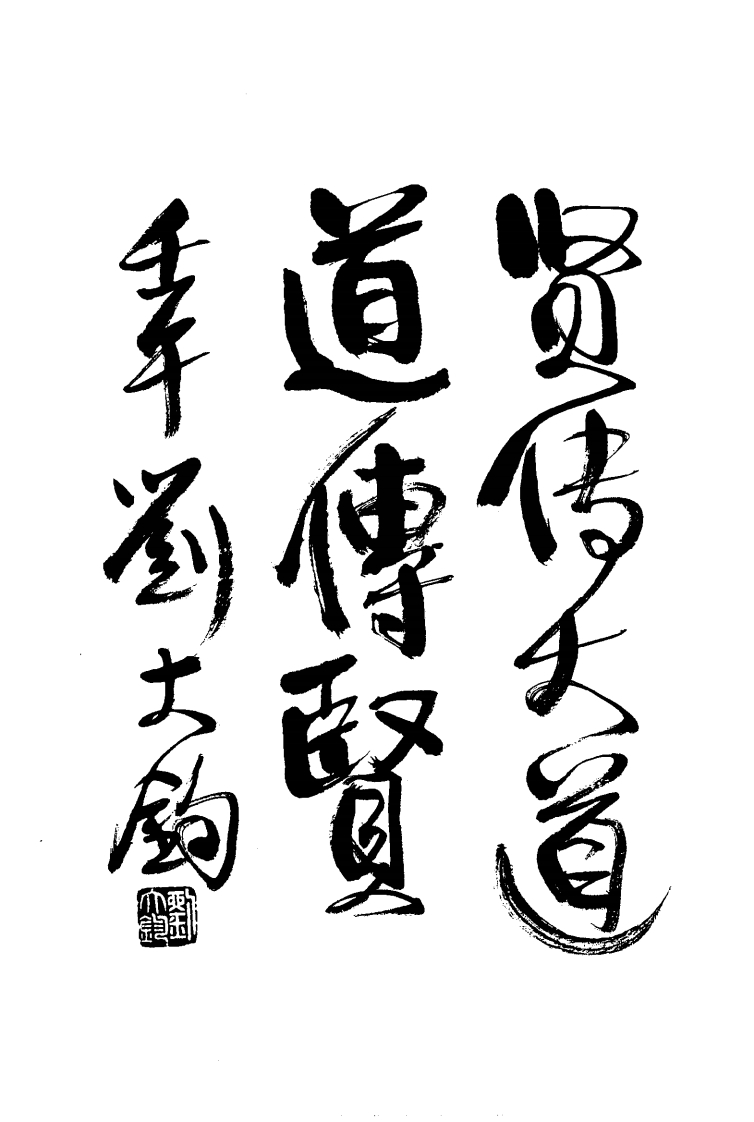 贤传大道
道傳賢
壬午 劉大鈞
劉大鈞